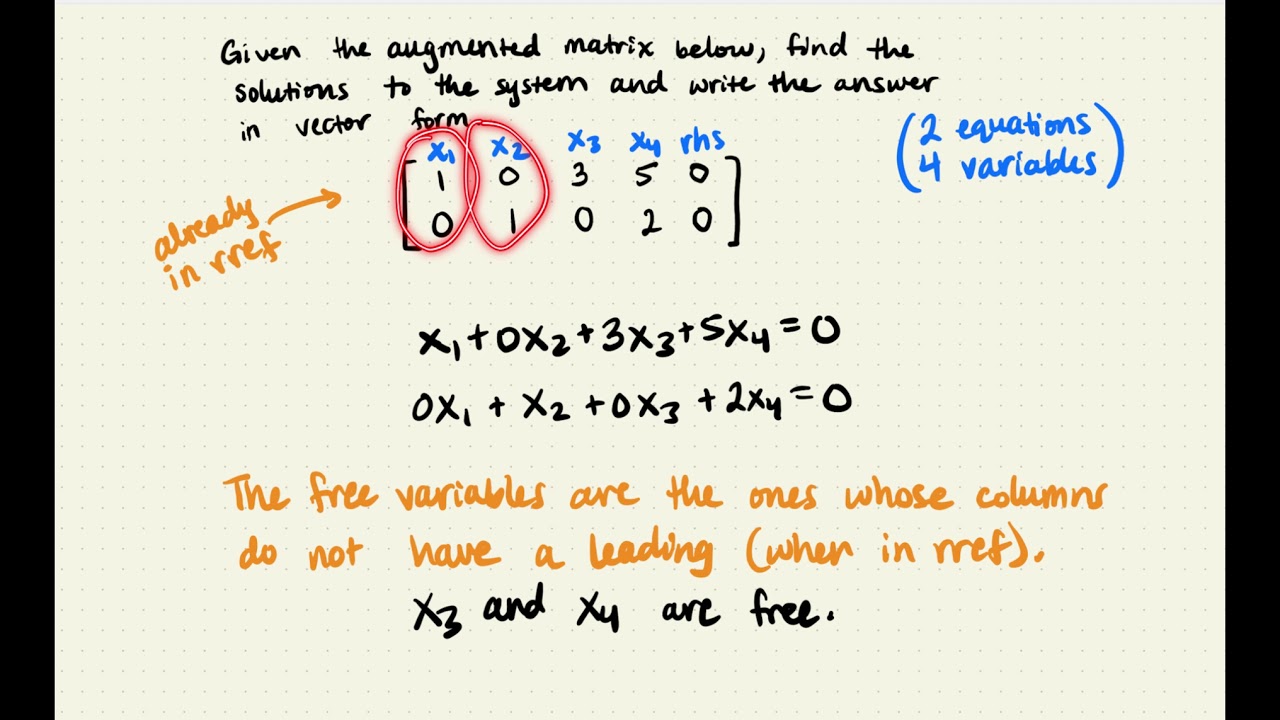 Given the augmented matrix below, find the
solutions to the system and write the answer
in vector form
(2 equations
4 variables)
x₁ x₂ x₃ x₄ rhs
1 0 3 5 0
0 1 0 2 0
already
in rref
x₁+0x₂+3x₃+5x₄=0
0x₁ + x₂ +0x₃ +2x₄=0
The free variables are the ones whose columns
do not have a leading (when in rref).
x₃ and x₄ are free.